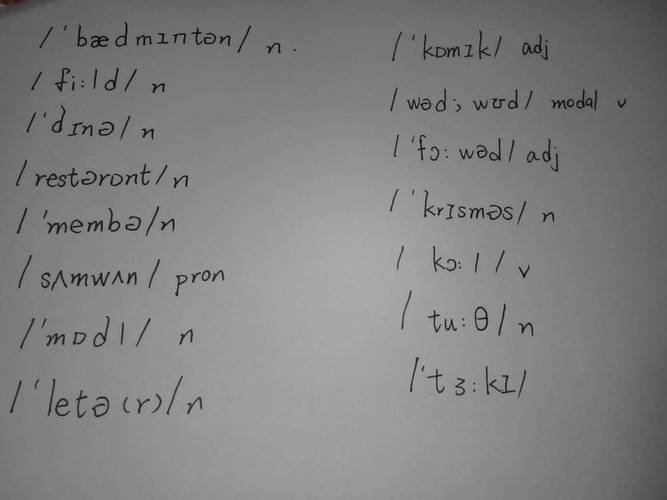 /ˈbædmɪntən/ n.
/fi:ld/ n
/ˈdɪnə/ n
/restərɒnt/ n
/ˈmembə/n
/sʌmwʌn/ pron
/ˈmɒdl/ n
/ˈletə(r)/n
/ˈkɒmɪk/ adj
/wəd; wʊd/ modal v
/ˈfɔ:wəd/ adj
/ˈkrɪsməs/ n
/kɔ:l/ v
/tu:θ/ n
/ˈtɜ:kɪ/